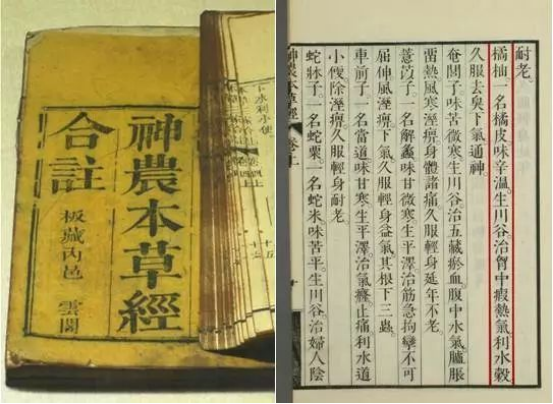 神農本草經
合註
板藏內邑 雲閣
下水利小便
耐老。
橘柚一名橘皮味辛溫。生川谷治胷中瘕熱氣利水穀
久服去臭下氣通神。
奄閭子味苦微寒生川谷治五藏瘀血腹中水氣臚脹
畱熱風寒溼痹身體諸痛久服輕身延年不老。
薏苡子一名解蠡味甘微寒生平澤治筋急拘攣不可
屈伸風溼痹下氣久服輕身益氣其根下三蟲
車前子一名當道味甘寒生平澤治氣癃止痛利水道
小便除溼痹久服輕身耐老
蛇牀子一名蛇粟一名蛇米味苦平生川谷治婦人陰
神農本草經 卷上